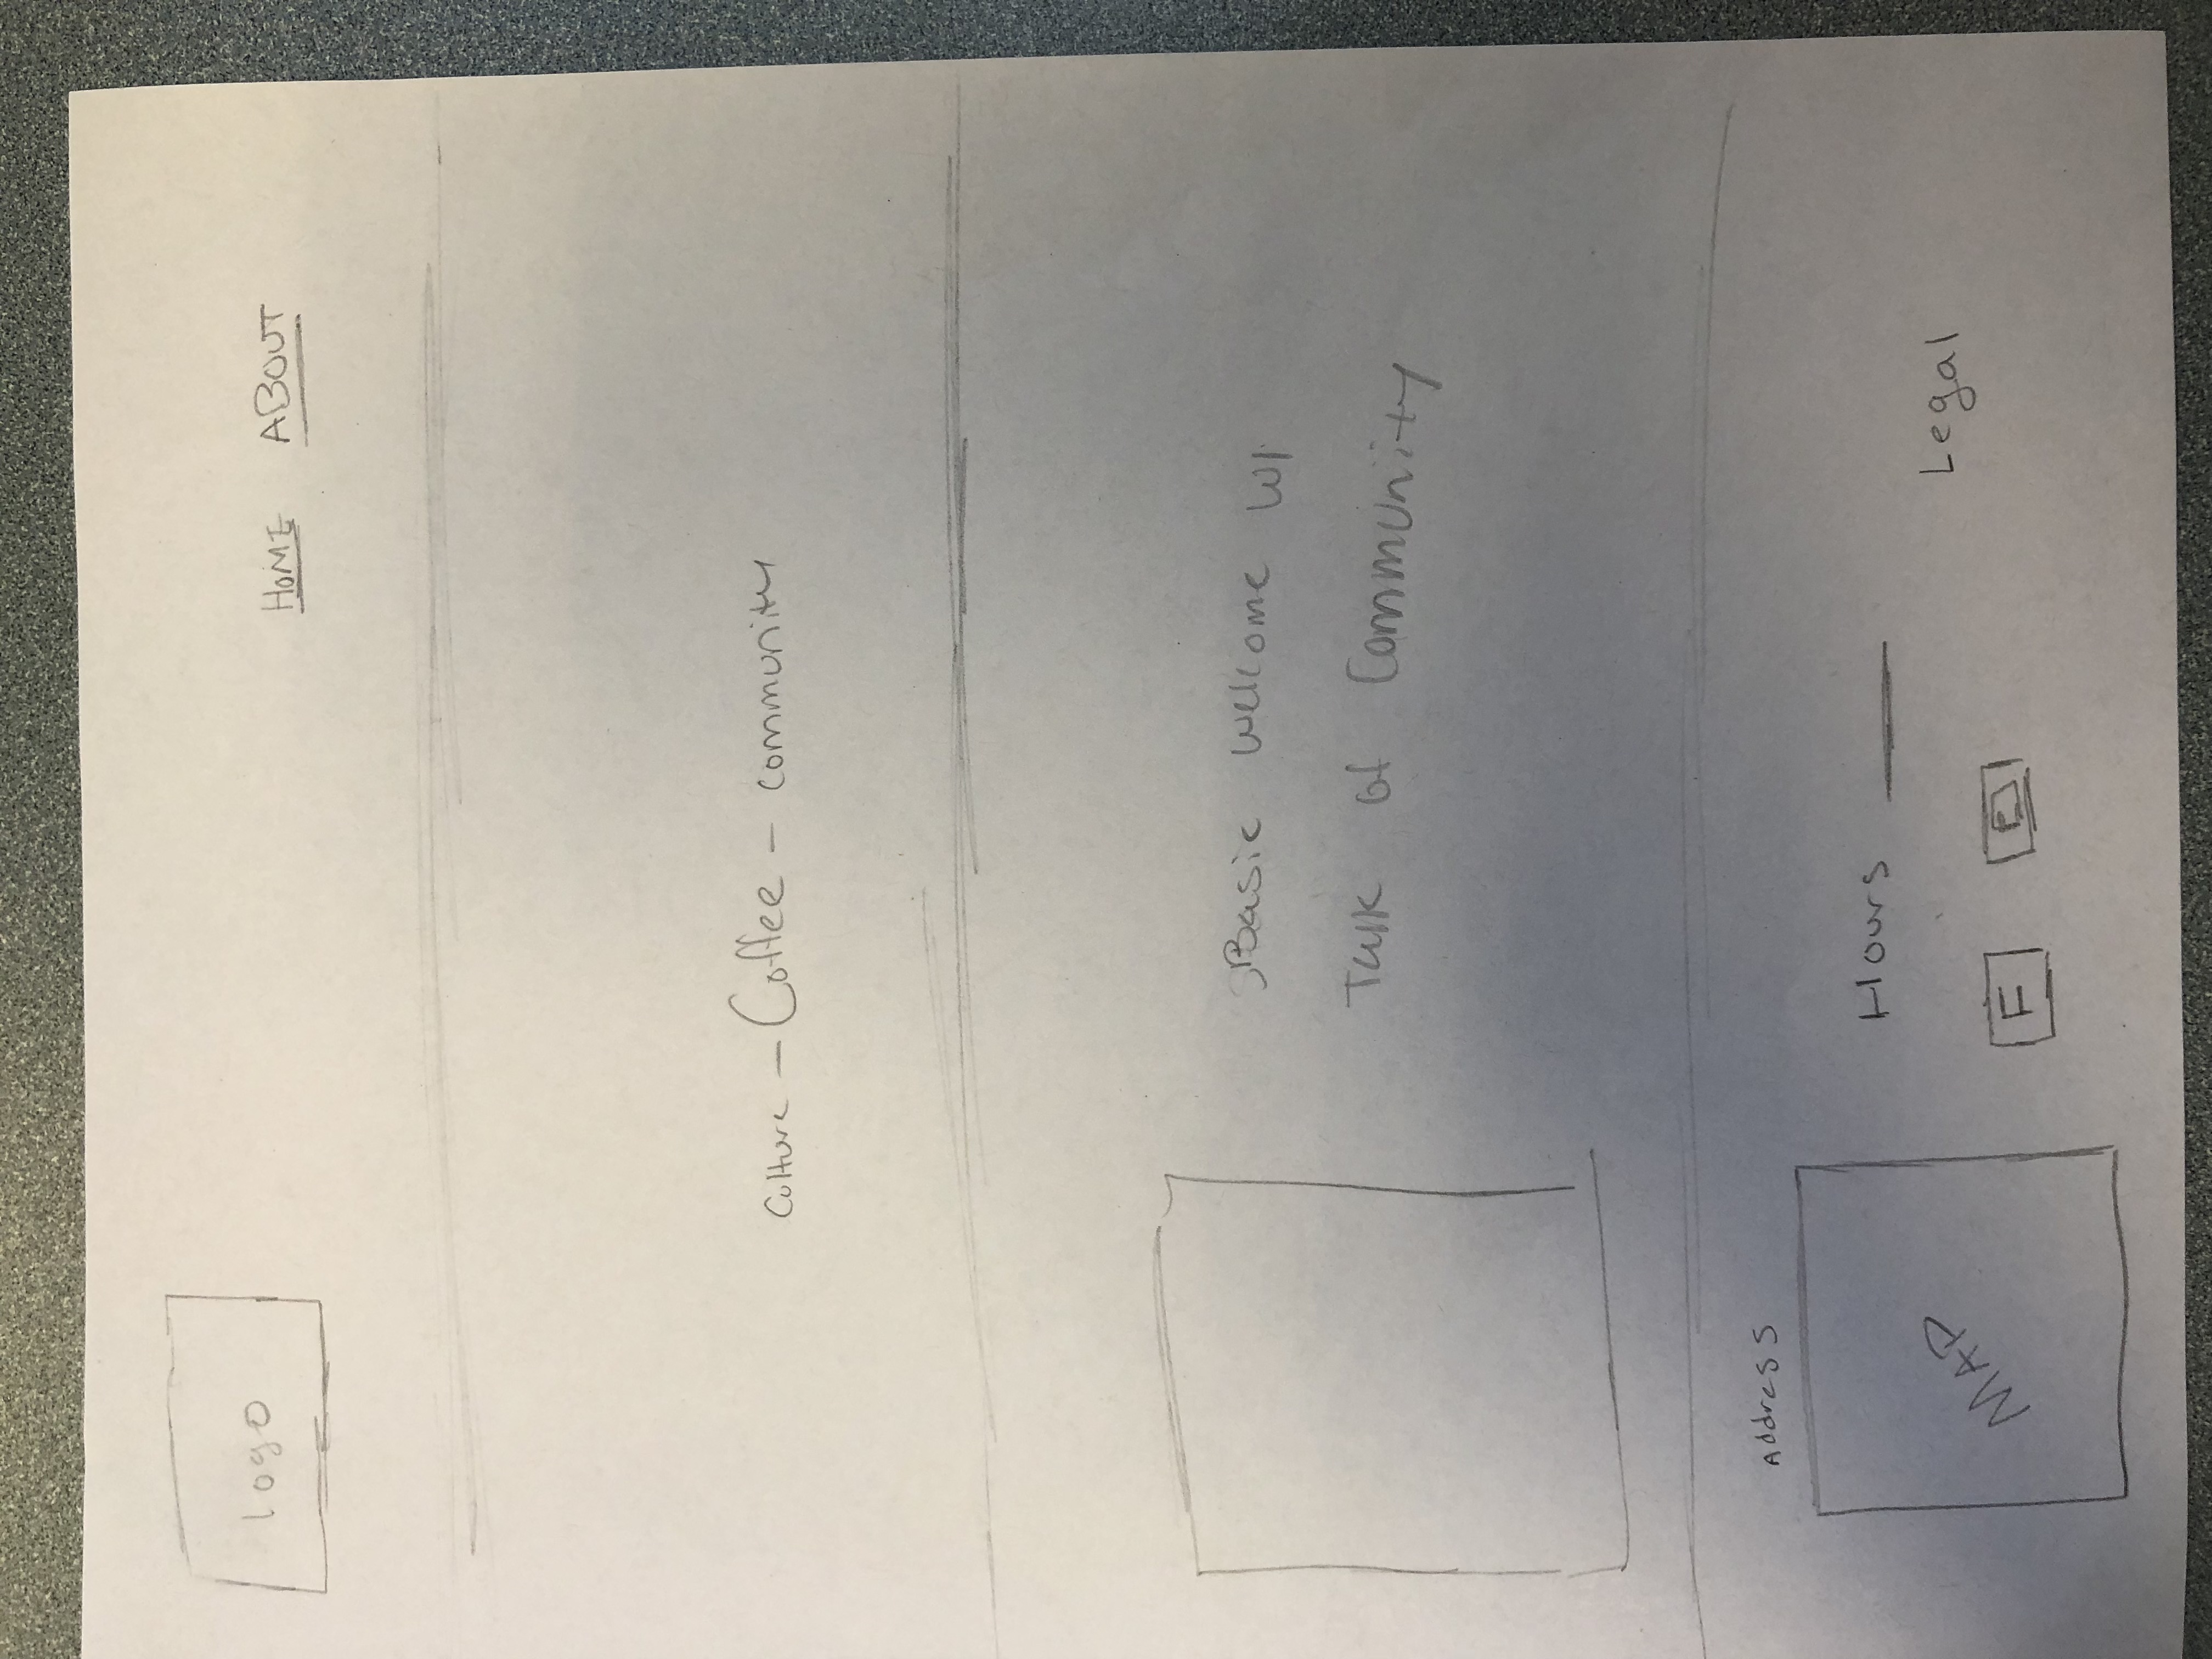 logo
HOME ABOUT
Culture - Coffee - community
Basic welcome w/
Talk of Community
Address
MAP
Hours
Legal
F